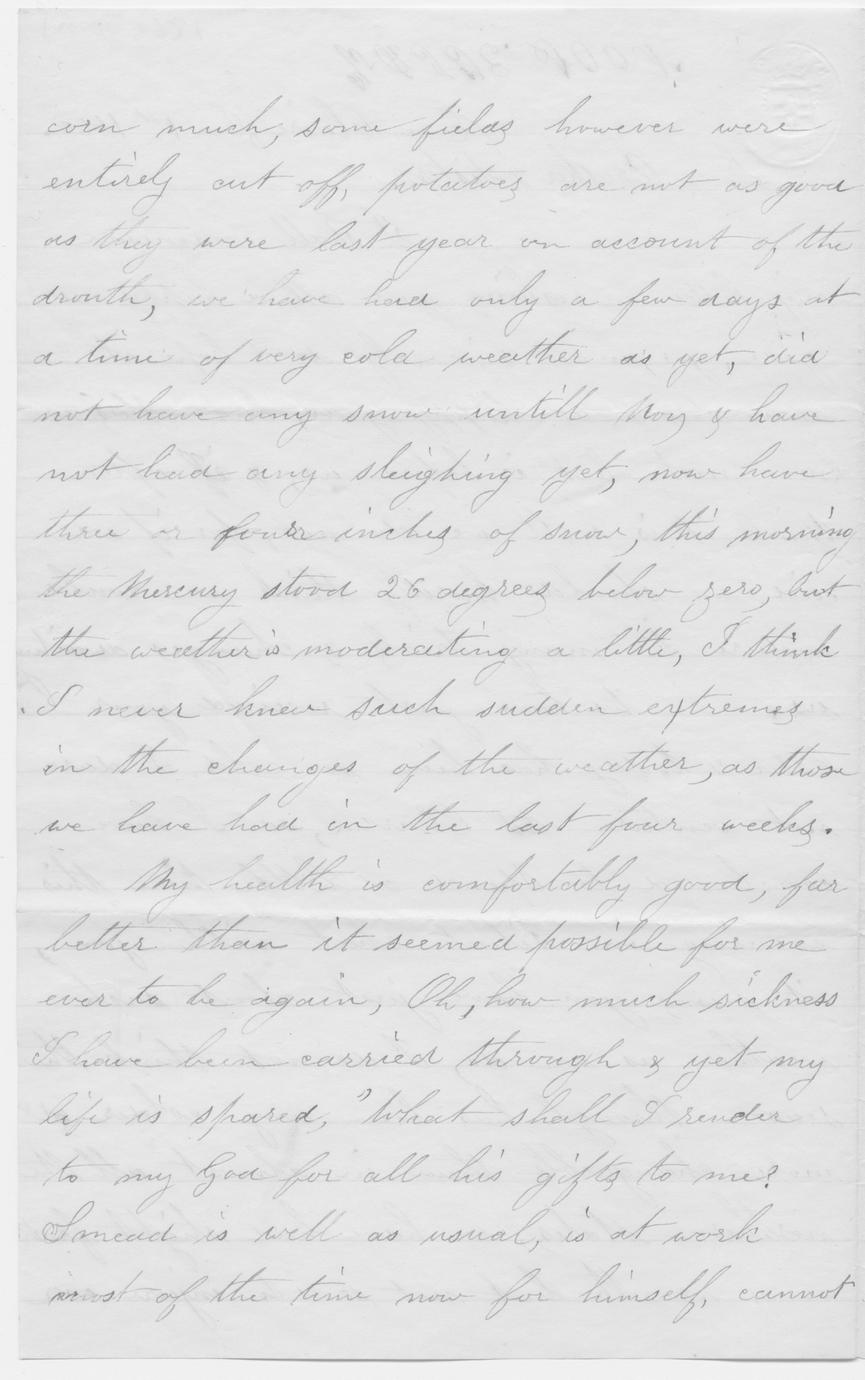 corn much, some fields however were
entirely cut off, potatoes are not as good
as they were last year on account of the
drouth, we have had only a few days at
a time of very cold weather as yet, did
not have any snow untill Nov, & have
not had any sleighing yet, now have
three or fourr inches of snow, this morning
the Mercury stood 26 degrees below zero, but
the weather is moderating a little, I think
I never knew such sudden extremes
in the changes of the weather, as those
we have had in the last four weeks.
My health is comfortably good, far
better than it seemed possible for me
ever to be again, Oh, how much sickness
I have been carried through & yet my
life is spared, "What shall I render
to my God for all his gifts to me?
Smead is well as usual, is at work
most of the time now for himself, cannot